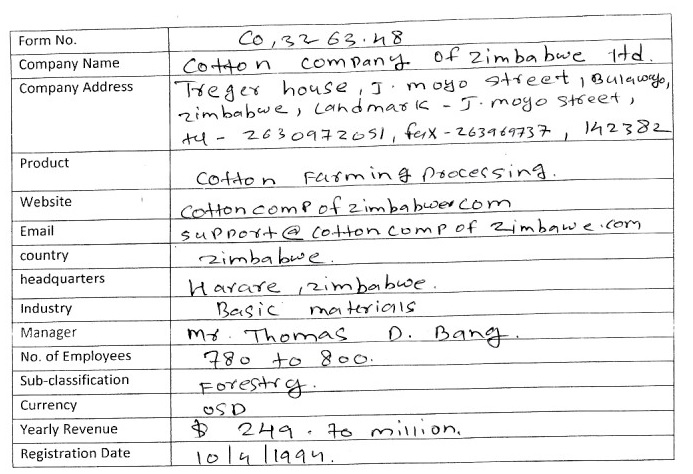 Form No. CO,3263.48
Company Name Cotton company of zimbabwe ltd.
Company Address Treger house, J. moyo street, Bulawayo,
zimbabwe, Landmark - J. moyo street,
tel - 2630972051, fax - 263969737, 142382
Product Cotton Farming processing.
Website cottoncompofzimbabwe.com
Email support@cottoncompofzimbawe.com
country zimbabwe.
headquarters Harare, zimbabwe.
Industry Basic materials
Manager Mr. Thomas D. Bang.
No. of Employees 780 to 800.
Sub-classification Forestry.
Currency USD
Yearly Revenue $ 249.70 million.
Registration Date 10/4/1994.